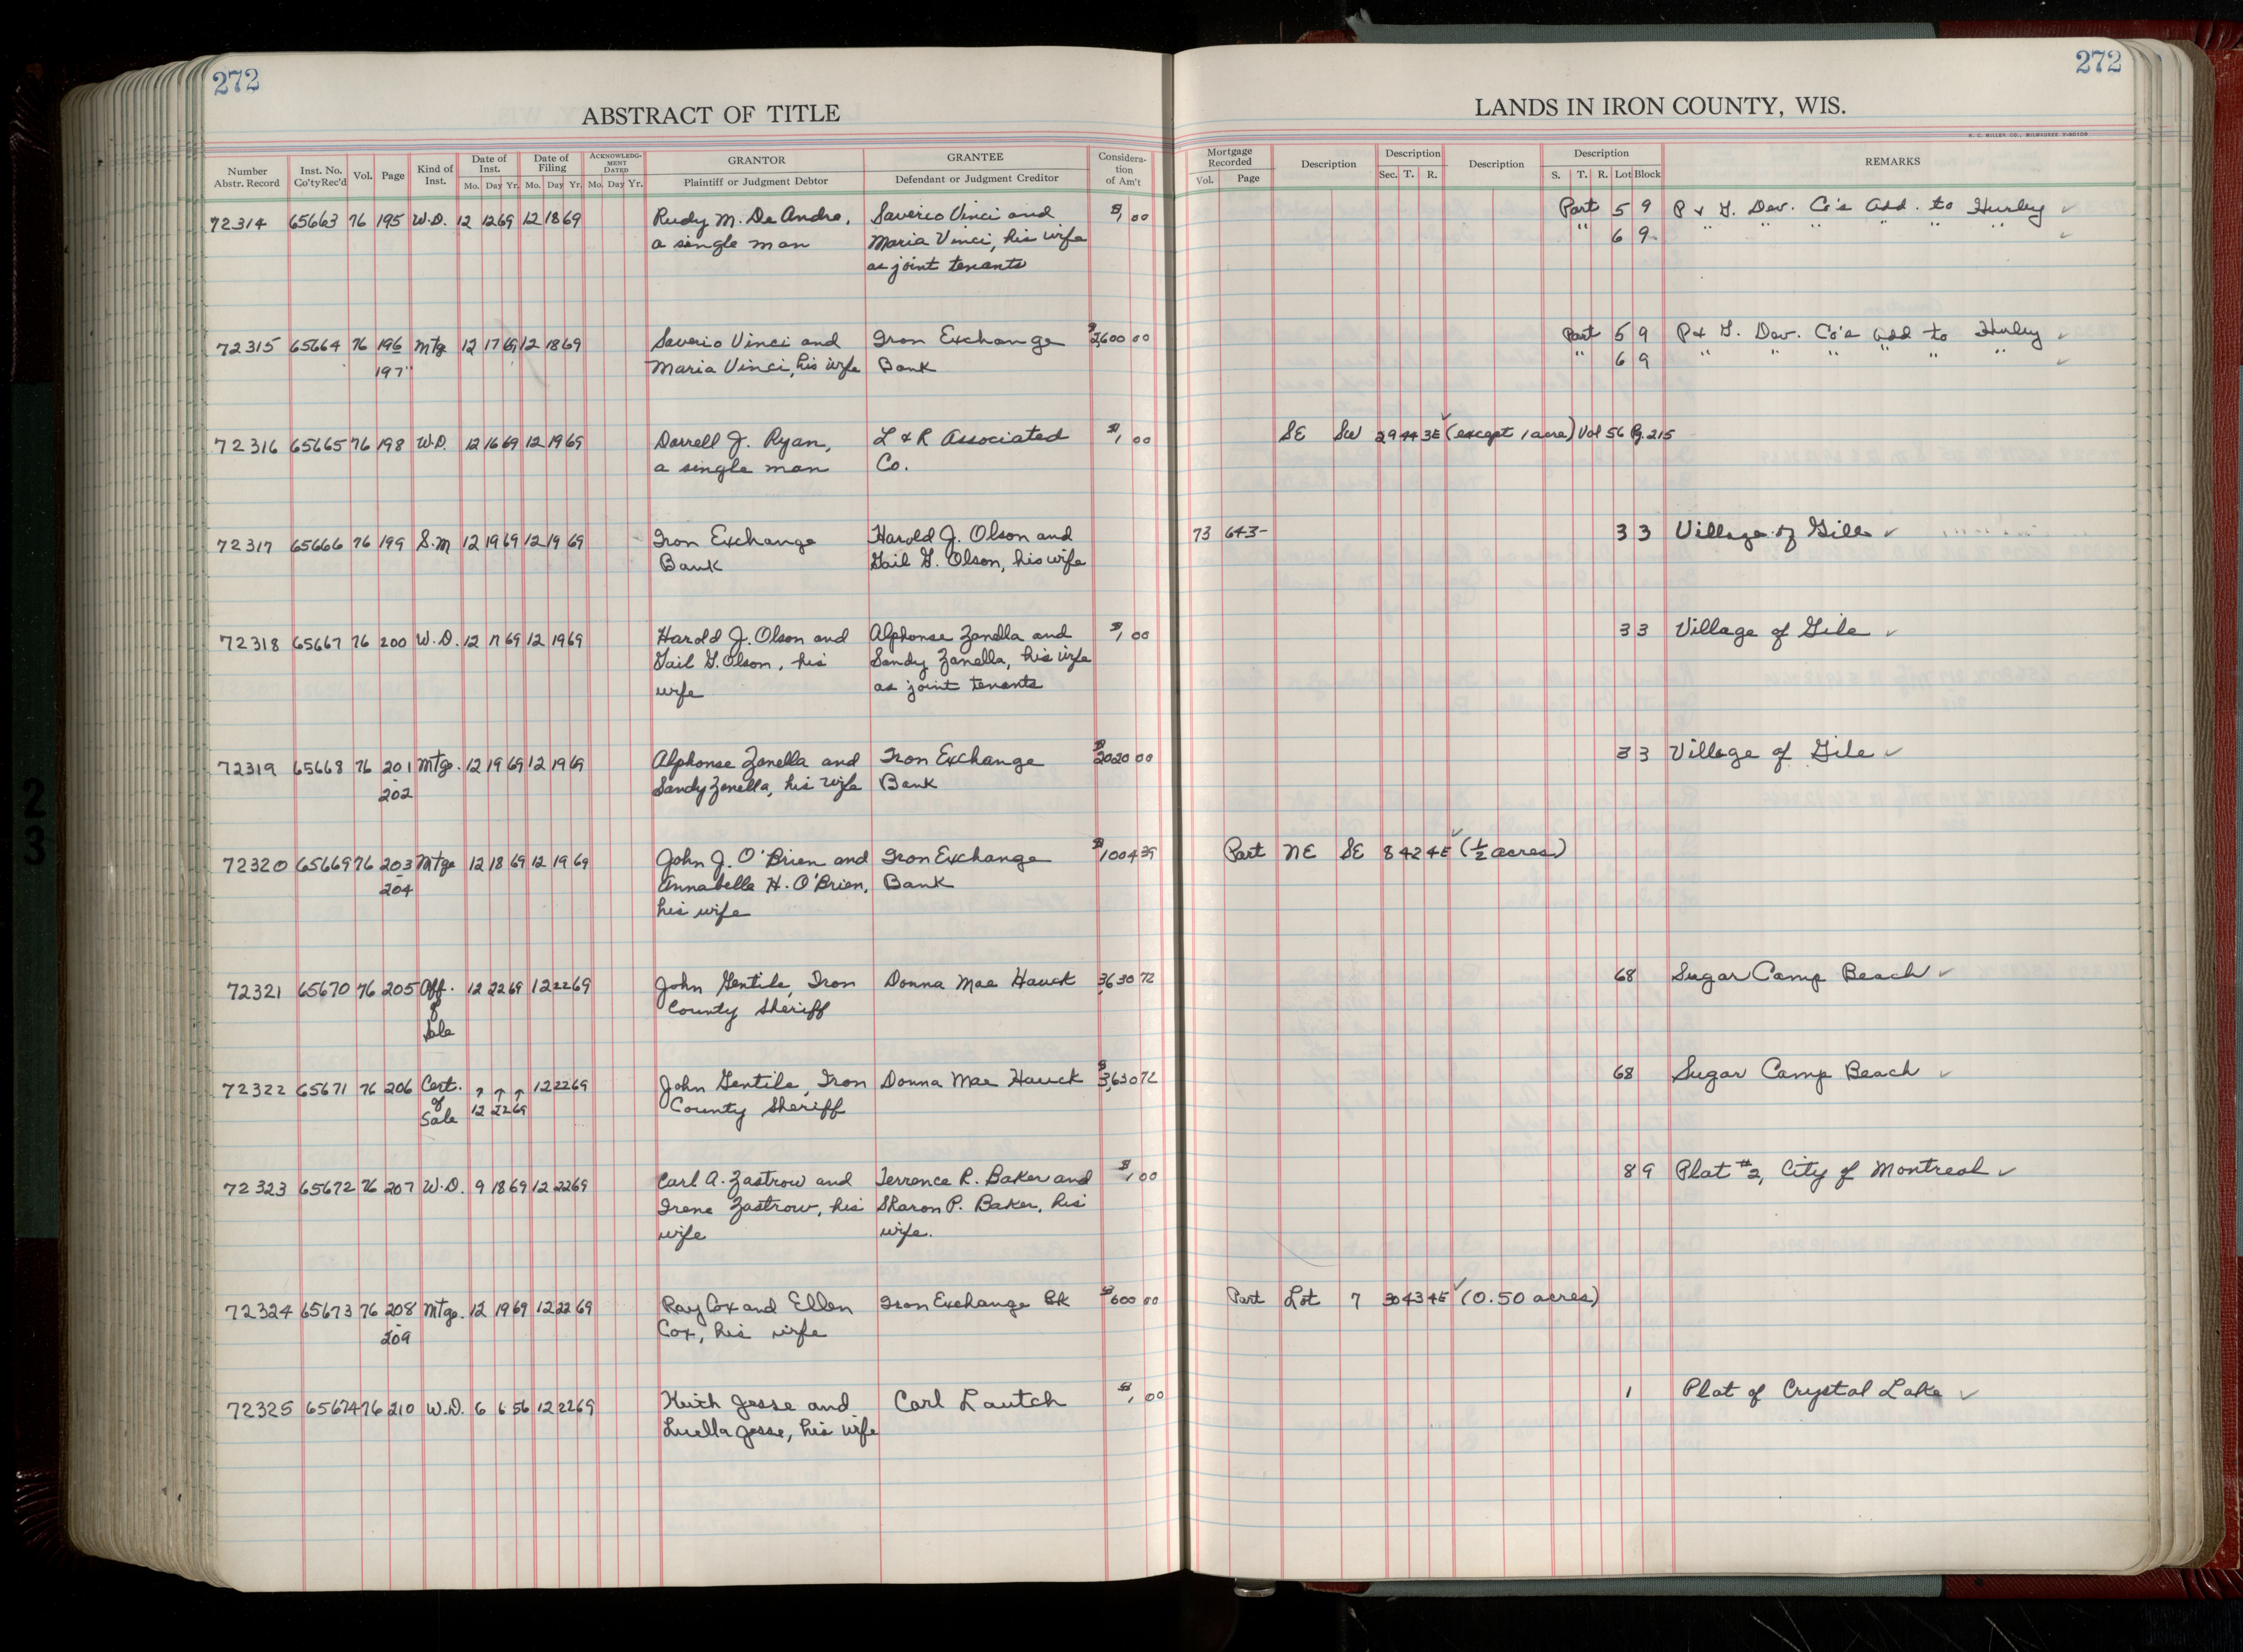 272
272
ABSTRACT OF TITLE
LANDS IN IRON COUNTY, WIS.
H. C. MILLER CO., MILWAUKEE
Number Abstr. Record | Inst. No. Co'ty Rec'd | Vol. | Page | Kind of Inst. | Date of Inst. Mo. Day Yr. | Date of Filing Mo. Day Yr. | ACKNOWLEDGMENT DATED Mo. Day Yr. | GRANTOR Plaintiff or Judgment Debtor | GRANTEE Defendant or Judgment Creditor | Consideration of Am't | Mortgage Recorded Vol. Page | Description | Description Sec. T. R. | Description | Description S. T. R. Lot Block | REMARKS
72314 65663 76 195 W.D. 12 12 69 12 18 69 Rudy M. De Andre, Saverio Vinci and $1,00 Part 5 9 P & G. Dev. Co's Add. to Hurley ✓
a single man Maria Vinci, his wife " 6 9 " " " " " " ✓
as joint tenants
72315 65664 76 196 Mtg 12 17 69 12 18 69 Saverio Vinci and Iron Exchange $2,600 00 Part 5 9 P & G. Dev. Co's Add to Hurley ✓
197 Maria Vinci, his wife Bank " 6 9 " " " " " " ✓
72316 65665 76 198 W.D. 12 16 69 12 19 69 Darrell J. Ryan, L & R Associated $1,00 SE SW 29 44 3E ✓ (except 1 acre) Vol 56 Pg. 215
a single man Co.
72317 65666 76 199 S.M 12 19 69 12 19 69 Iron Exchange Harold J. Olson and 73 643- 3 3 Village of Gile ✓
Bank Gail G. Olson, his wife
72318 65667 76 200 W.D. 12 17 69 12 19 69 Harold J. Olson and Alphonse Zanella and $1,00 3 3 Village of Gile ✓
Gail G. Olson, his Sandy Zanella, his wife
wife as joint tenants
72319 65668 76 201 Mtge. 12 19 69 12 19 69 Alphonse Zanella and Iron Exchange $2020 00 3 3 Village of Gile ✓
-
202 Sandy Zanella, his wife Bank
72320 65669 76 203 Mtge 12 18 69 12 19 69 John J. O'Brien and Iron Exchange $1004 39 Part NE SE 8 42 4E ✓ (1/2 acres)
-
204 Annabelle H. O'Brien, Bank
his wife
72321 65670 76 205 Aff. 12 22 69 12 22 69 John Gentile, Iron Donna Mae Hauck 3,630 72 68 Sugar Camp Beach ✓
of County Sheriff
Sale
72322 65671 76 206 Cert. ↑ ↑ ↑ 12 22 69 John Gentile, Iron Donna Mae Hauck $3,630 72 68 Sugar Camp Beach ✓
of 12 22 69 County Sheriff
Sale
72323 65672 76 207 W.D. 9 18 69 12 22 69 Carl A. Zastrow and Terrence R. Baker and $1,00 8 9 Plat #2, City of Montreal ✓
Irene Zastrow, his Sharon P. Baker, his
wife wife.
72324 65673 76 208 Mtge. 12 19 69 12 22 69 Ray Cox and Ellen Iron Exchange Bk $600 00 Part Lot 7 30 43 4E ✓ (0.50 acres)
-
209 Cox, his wife
72325 65674 76 210 W.D. 6 6 56 12 22 69 Keith Jesse and Carl Lautch $1,00 1 Plat of Crystal Lake ✓
Luella Jesse, his wife